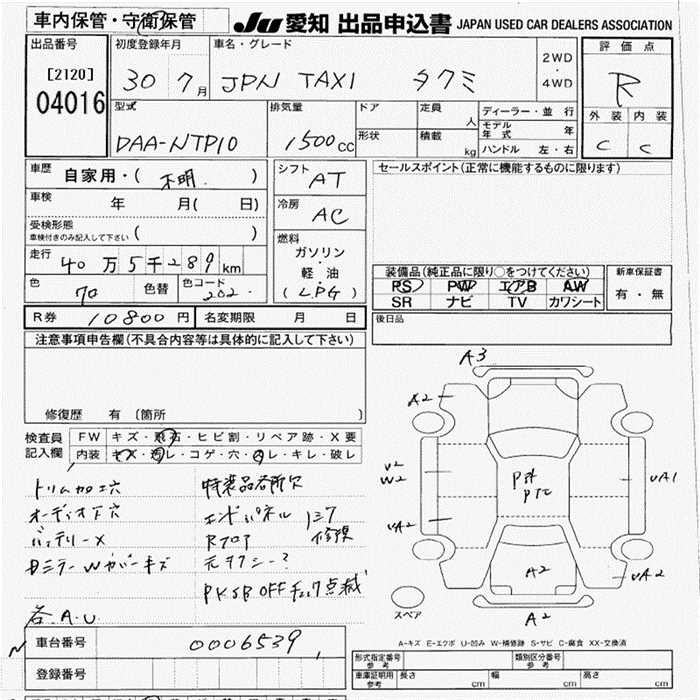 車内保管・守衛保管
JU 愛知 出品申込書 JAPAN USED CAR DEALERS ASSOCIATION
出品番号
[2120]
04016
初度登録年月
30 7 月
車名・グレード
JPN TAXI タクミ
2WD
・
4WD
評価点
R
外装 内装
C C
型式
DAA-NTP10
排気量
1500 cc
ドア
形状
定員 人
積載 kg
ディーラー・並行
モデル年式 年
ハンドル 左・右
車歴
自家用・( 不明 )
車検 年 月( 日)
受検形態
車検付きのみ記入して下さい ( )
走行
40万5千289km
色
70 色替
色コード
202
シフト
AT
冷房
AC
燃料
ガソリン
・
軽油
(LPG)
セールスポイント(正常に機能するものに限ります)
装備品(純正品に限り○をつけてください)
PS PW エアB AW
SR ナビ TV カワシート
新車保証書
有・無
R券 10800円 名変期限 月 日
後日品
注意事項申告欄(不具合内容等は具体的に記入して下さい)
修復歴 有 〔箇所 〕
検査員
記入欄
FW キズ・飛石・ヒビ割・リペア跡・X要
内装 キズ・汚レ・コゲ・穴・キレ・破レ
トリム加工穴
オーディオ下穴
バッテリーX
各A.U
特装品各所欠
エンドパネル
Rフロア
修復
元タクシー?
PKSB OFF チェック点滅
A3
A2
U2
W2
UA2
UA1
UA2
A2
A2
スペア
A-キズ E-エクボ U-凹み W-補修跡 S-サビ C-腐食 XX-交換済
車台番号 0006539
登録番号
形式指定番号
参考
類別区分番号
参考
車庫証明用
参考
長さ cm 幅 cm 高さ cm